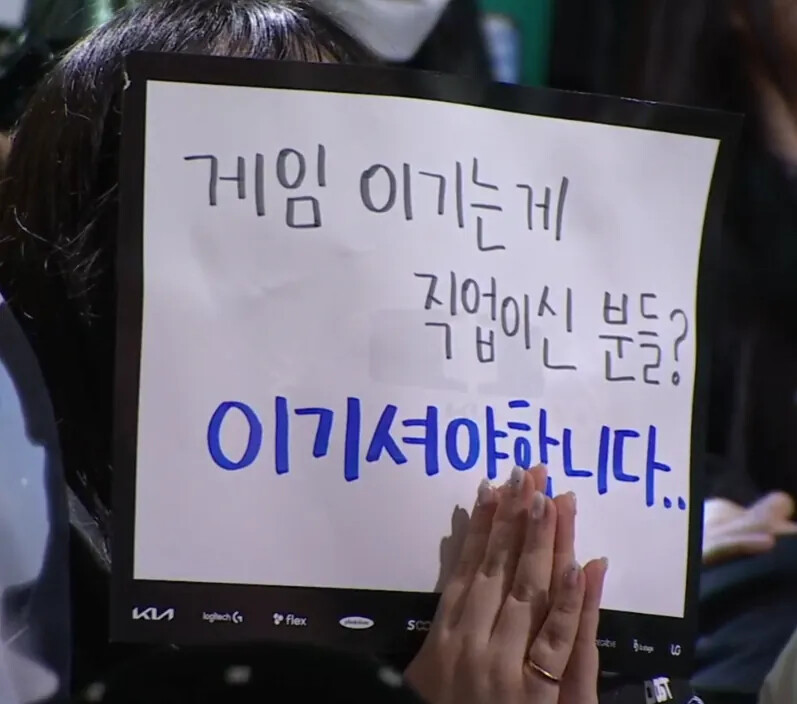 게임 이기는게
직업이신 분들?
이기셔야합니다..
KIA logitech G flex LG